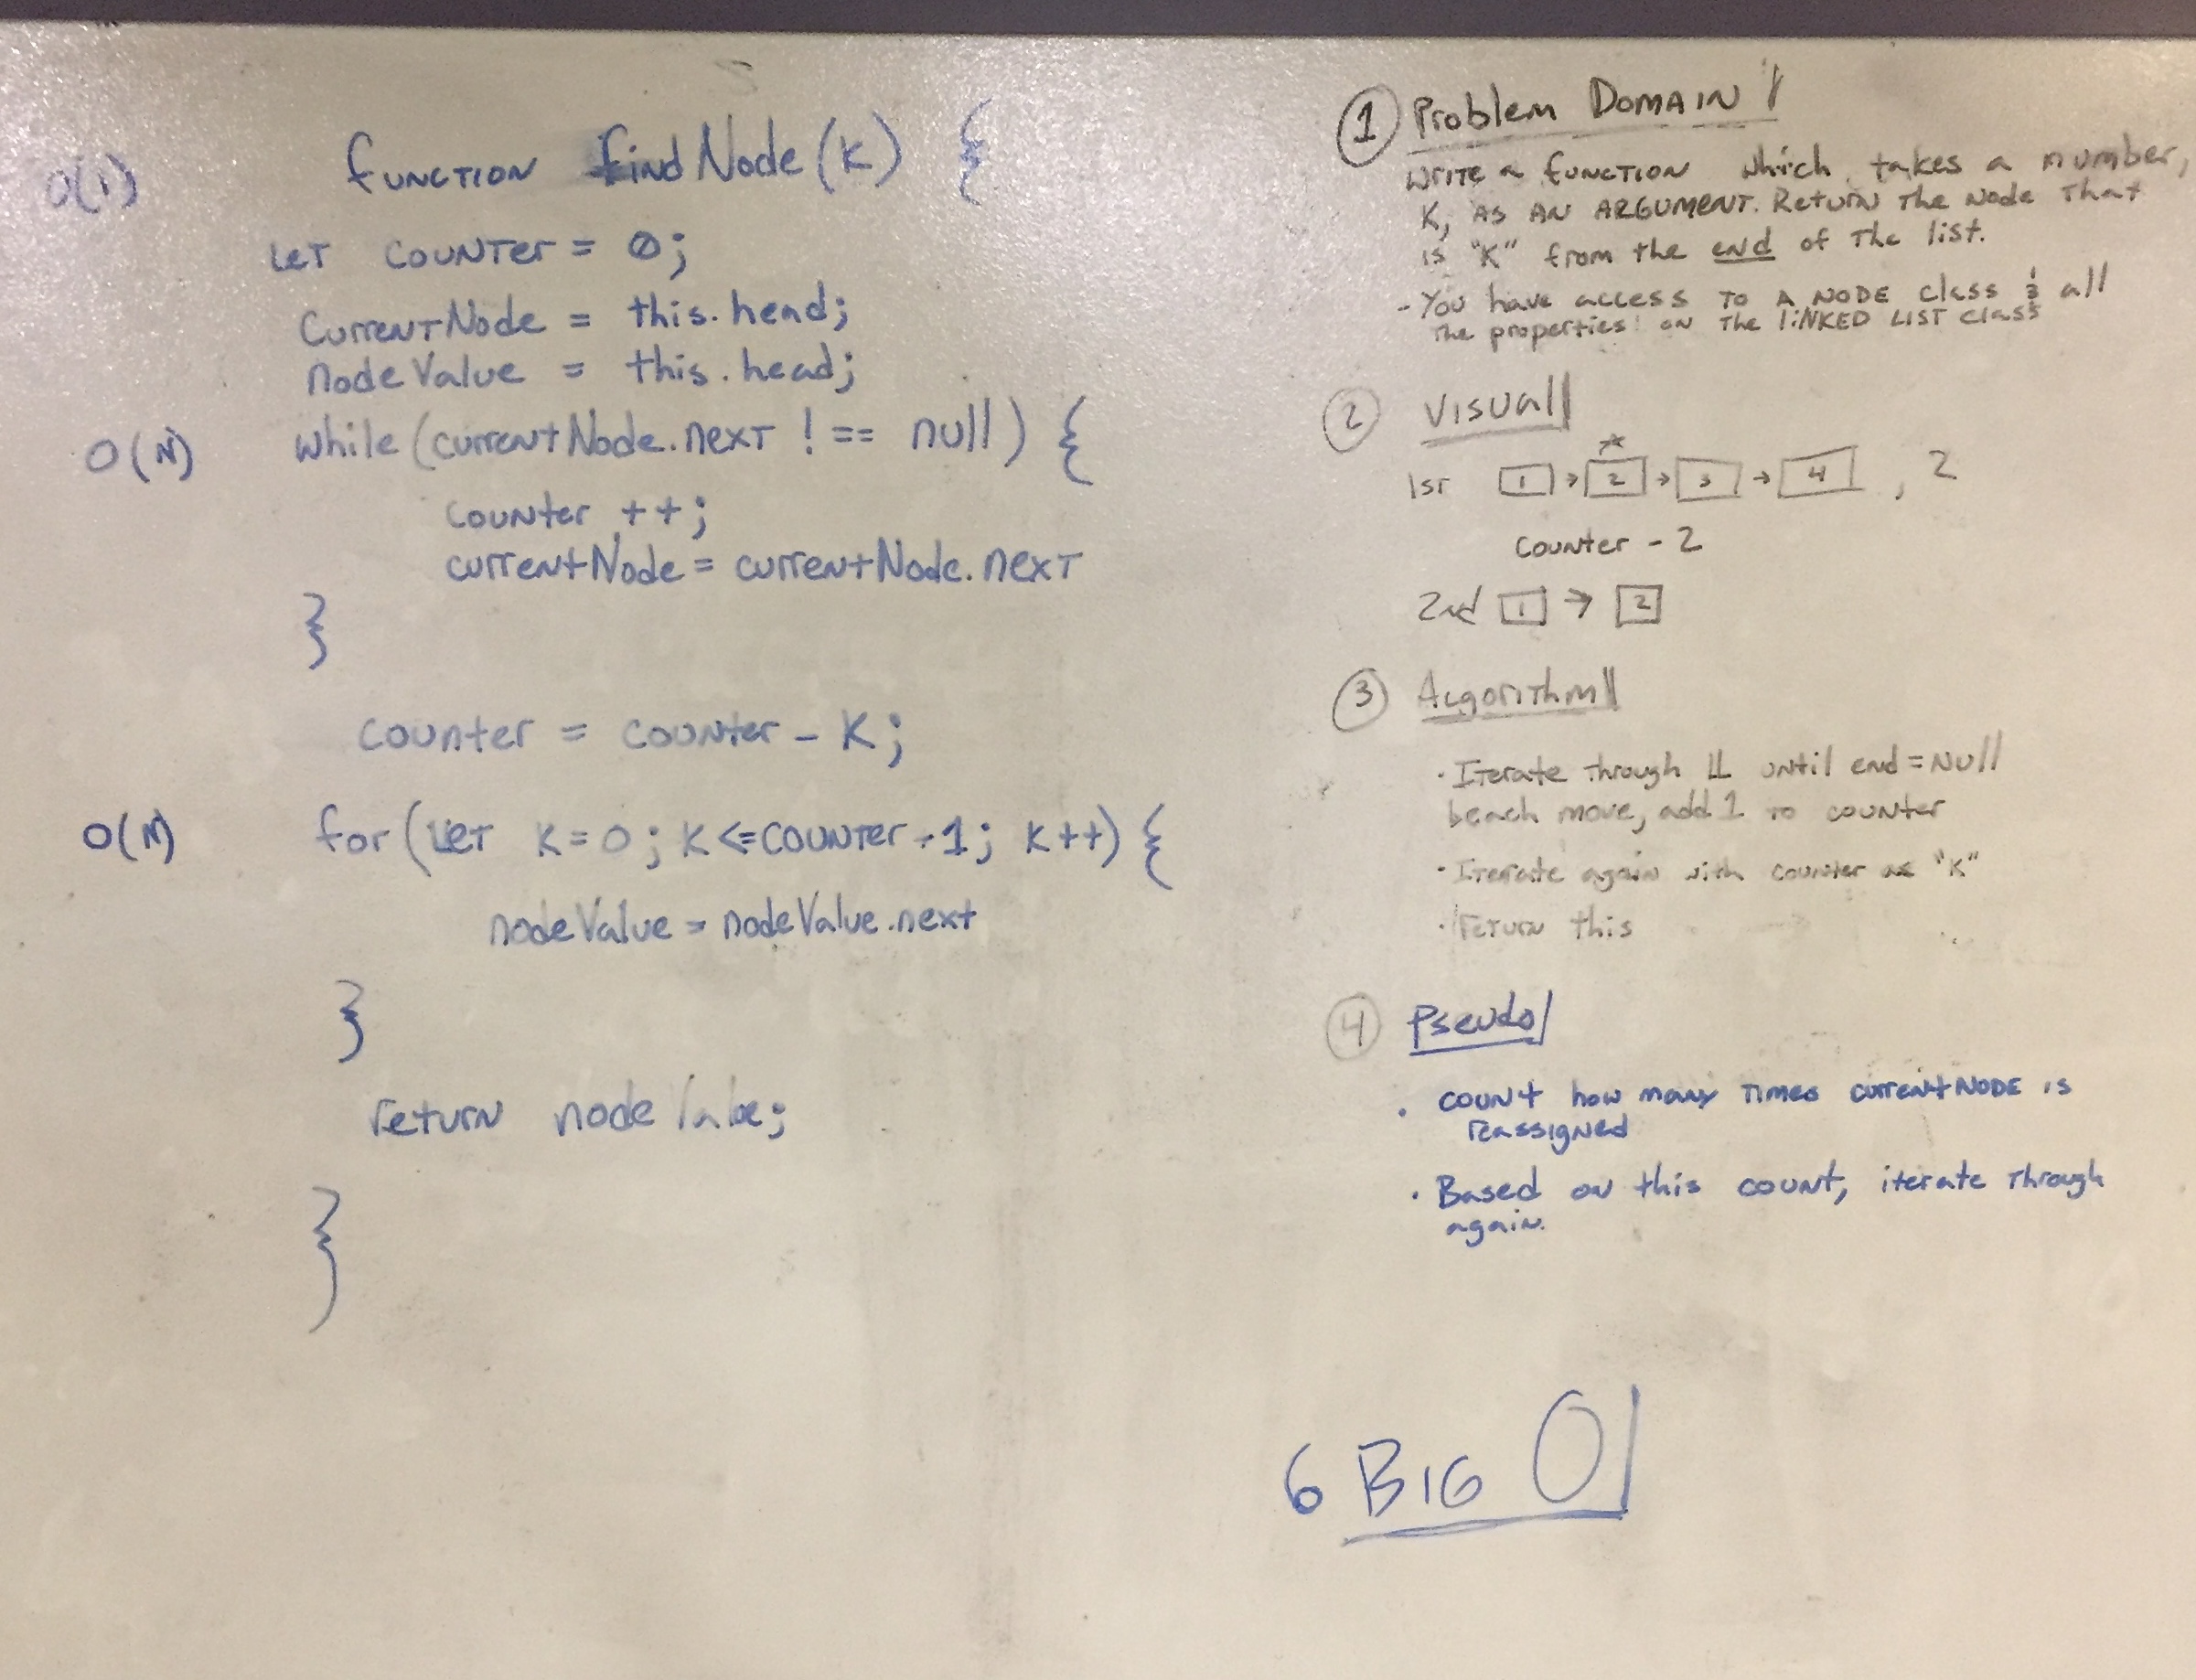 O(1)
function findNode(K) {
let counter = 0;
CurrentNode = this.head;
nodeValue = this.head;
O(N)
while (currentNode.next !== null) {
counter ++;
currentNode = currentNode.next
}
counter = counter - K;
O(N)
for (let K=0; K<=counter-1; K++) {
nodeValue = nodeValue.next
}
return nodeValue;
}
1 Problem Domain
Write a function which takes a number,
K, as an argument. Return the node that
is "K" from the end of the list.
- You have access to a Node class & all
the properties on the linked list class
2 Visual
1st 1 → 2 → 3 → 4 , 2
counter - 2
2nd 1 → 2
3 Algorithm
· Iterate through LL until end = Null
each move, add 1 to counter
· Iterate again with counter as "K"
· return this
4 Pseudo
· count how many times currentNode is
reassigned
· Based on this count, iterate through
again.
6 Big O